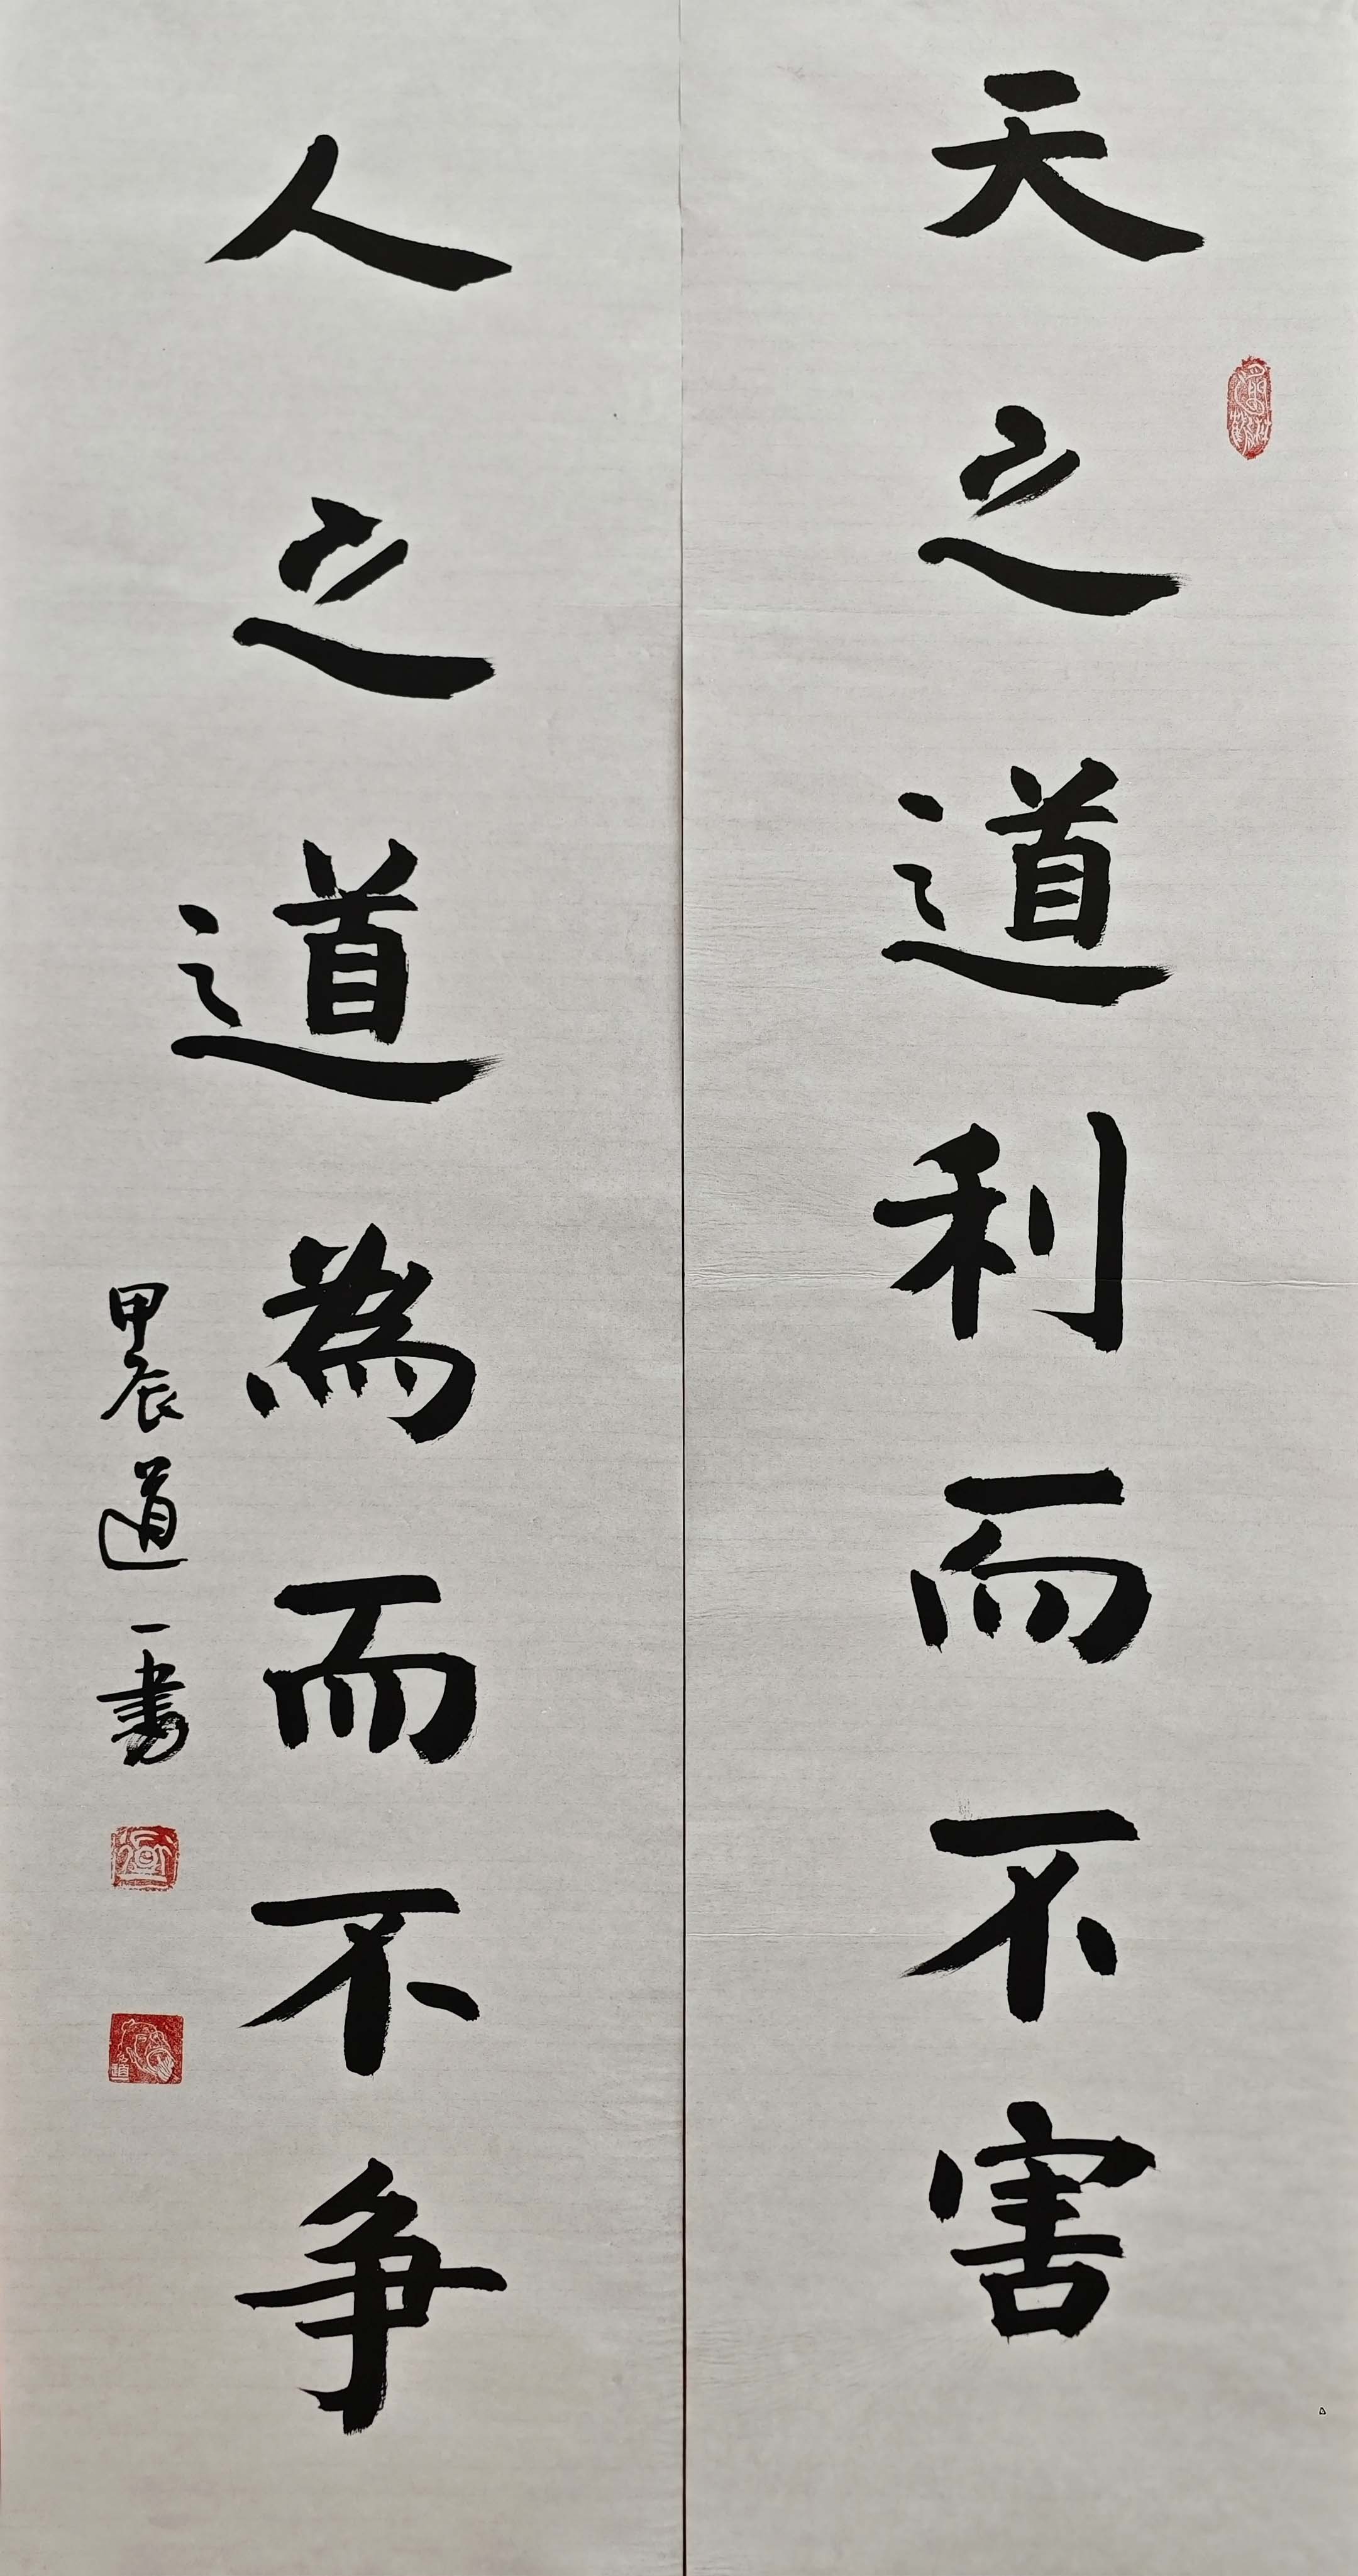 天之道利而不害
人之道為而不争
甲辰道一書